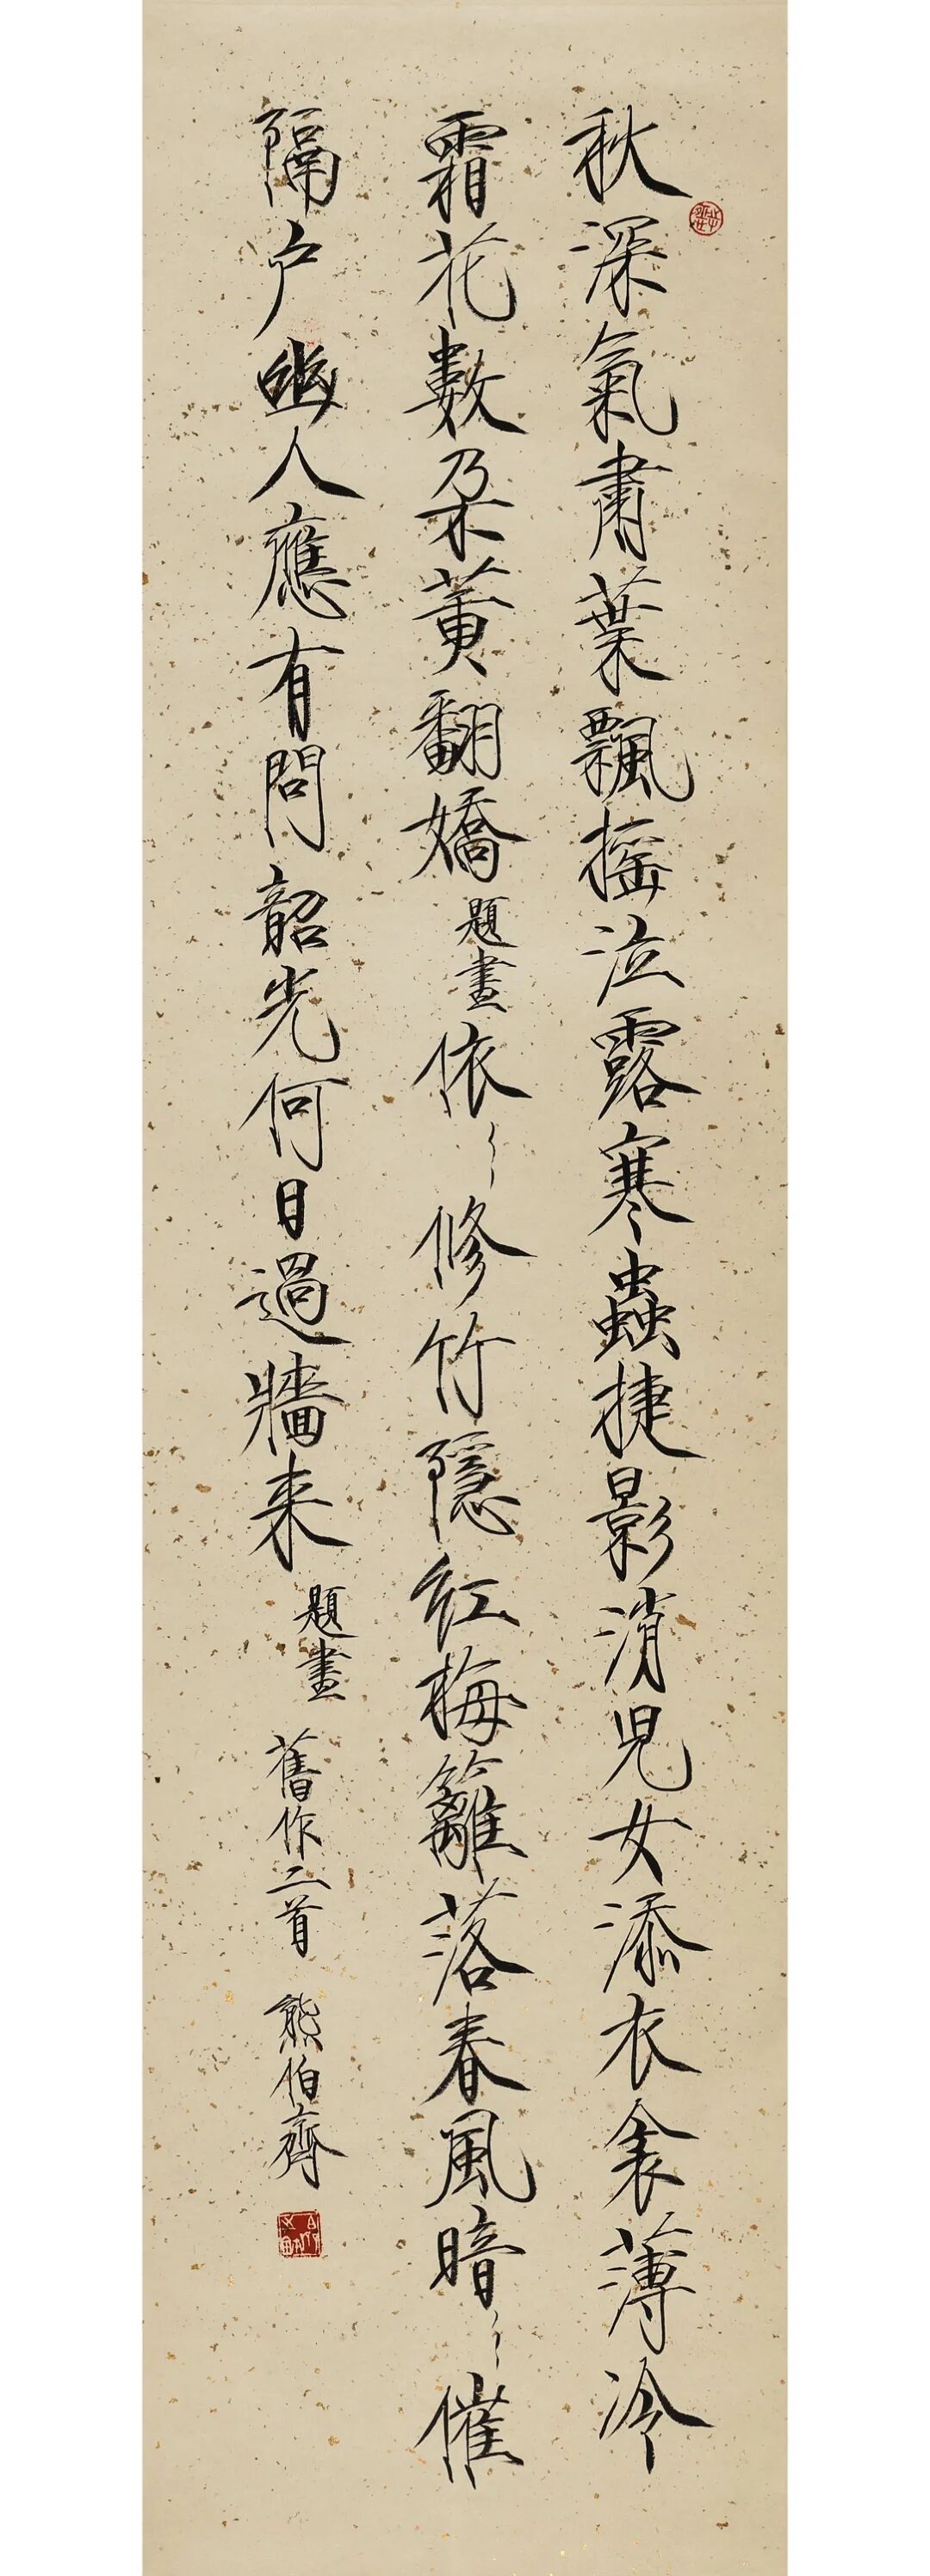 秋深氣肅葉飄摇泣露寒蟲捷影消兒女添衣衾薄冷
霜花數朵黄翻嬌題畫依〻修竹隱紅梅籬落春風暗〻催
隔户幽人應有問韶光何日過牆来題畫舊作二首熊伯齊